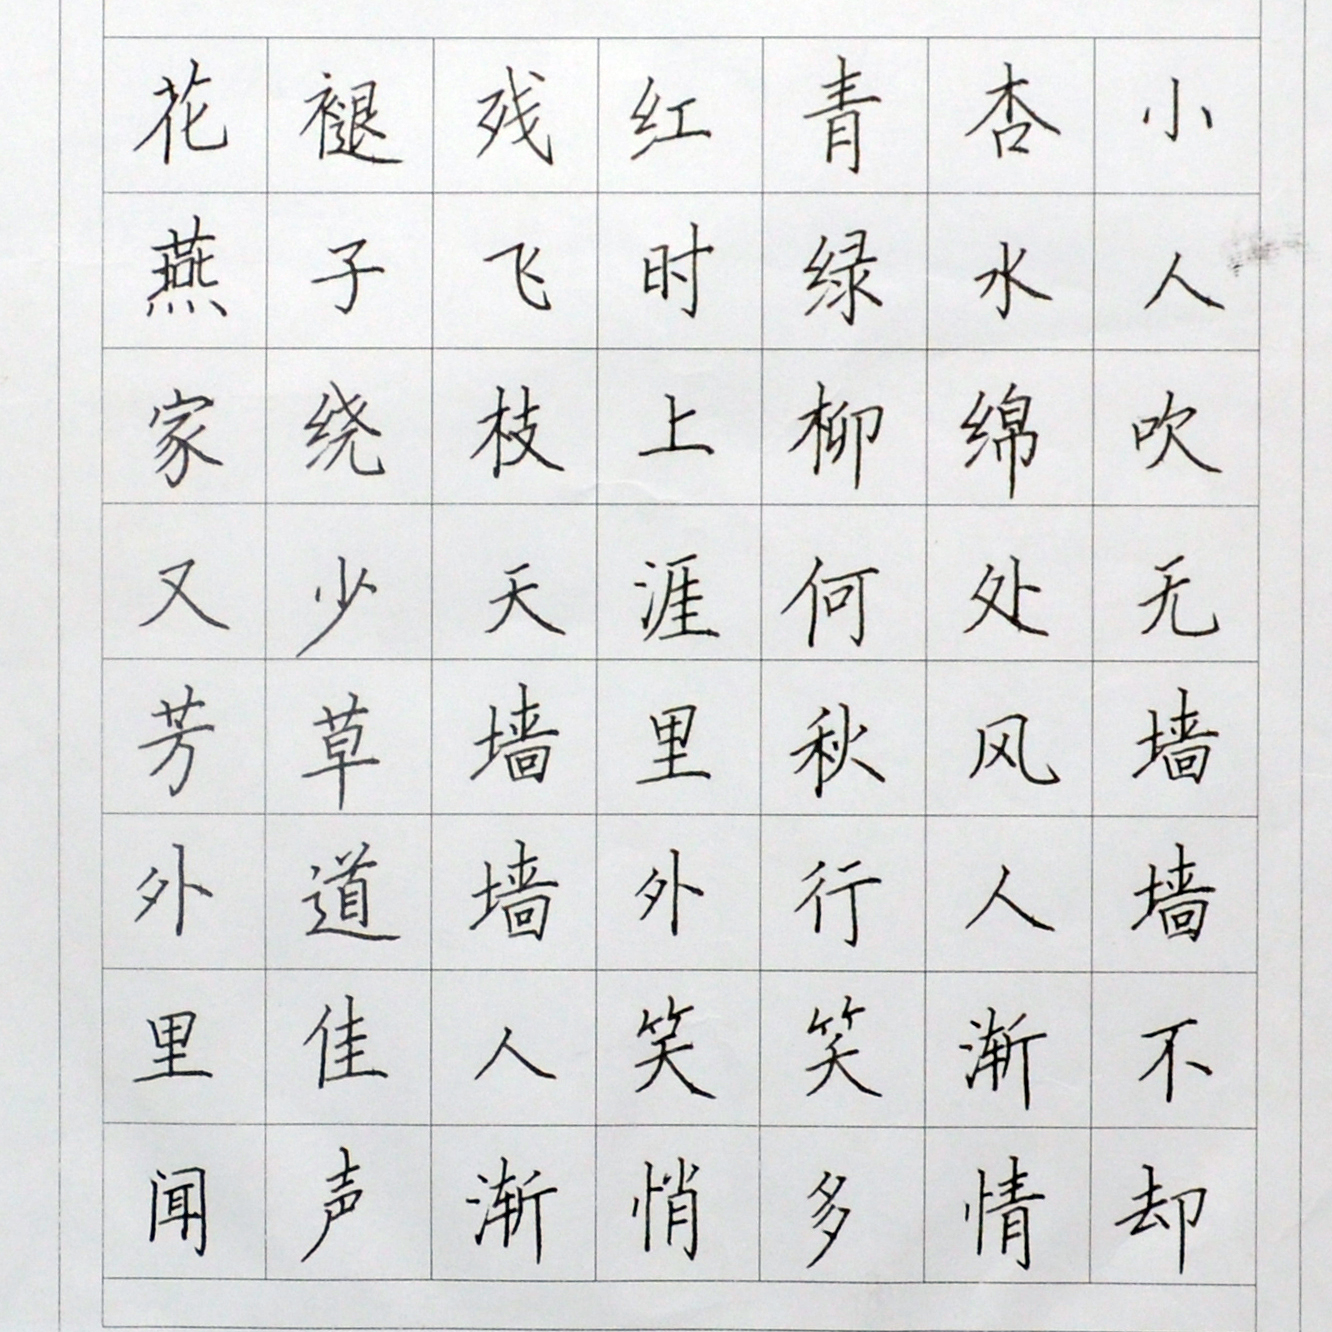 花褪残红青杏小
燕子飞时绿水人
家绕枝上柳绵吹
又少天涯何处无
芳草墙里秋风墙
外道墙外行人墙
里佳人笑笑渐不
闻声渐悄多情却